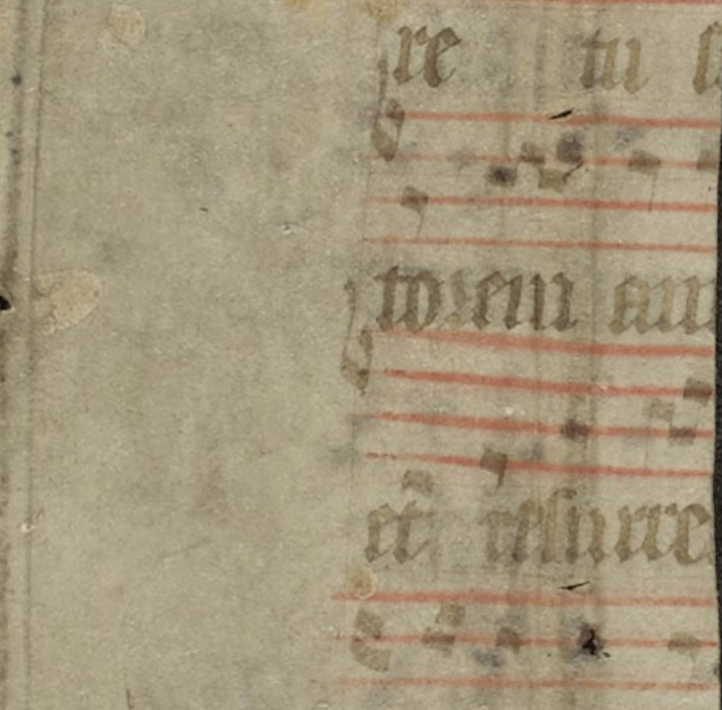 re tu
torem
et resurre